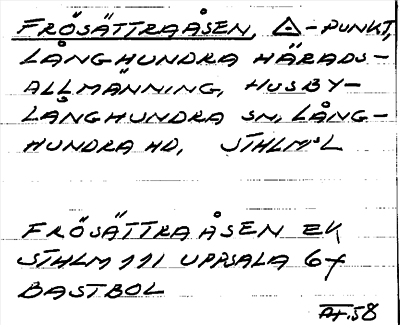 FRÖSÄTTRAÅSEN, △-PUNKT,
LÅNGHUNDRA HÄRADS-
ALLMÄNNING, HUSBY-
LÅNGHUNDRA SN, LÅNG-
HUNDRA HD, STHLMSL
FRÖSÄTTRAÅSEN EK
STHLM 111 UPPSALA 64
BASTBOL